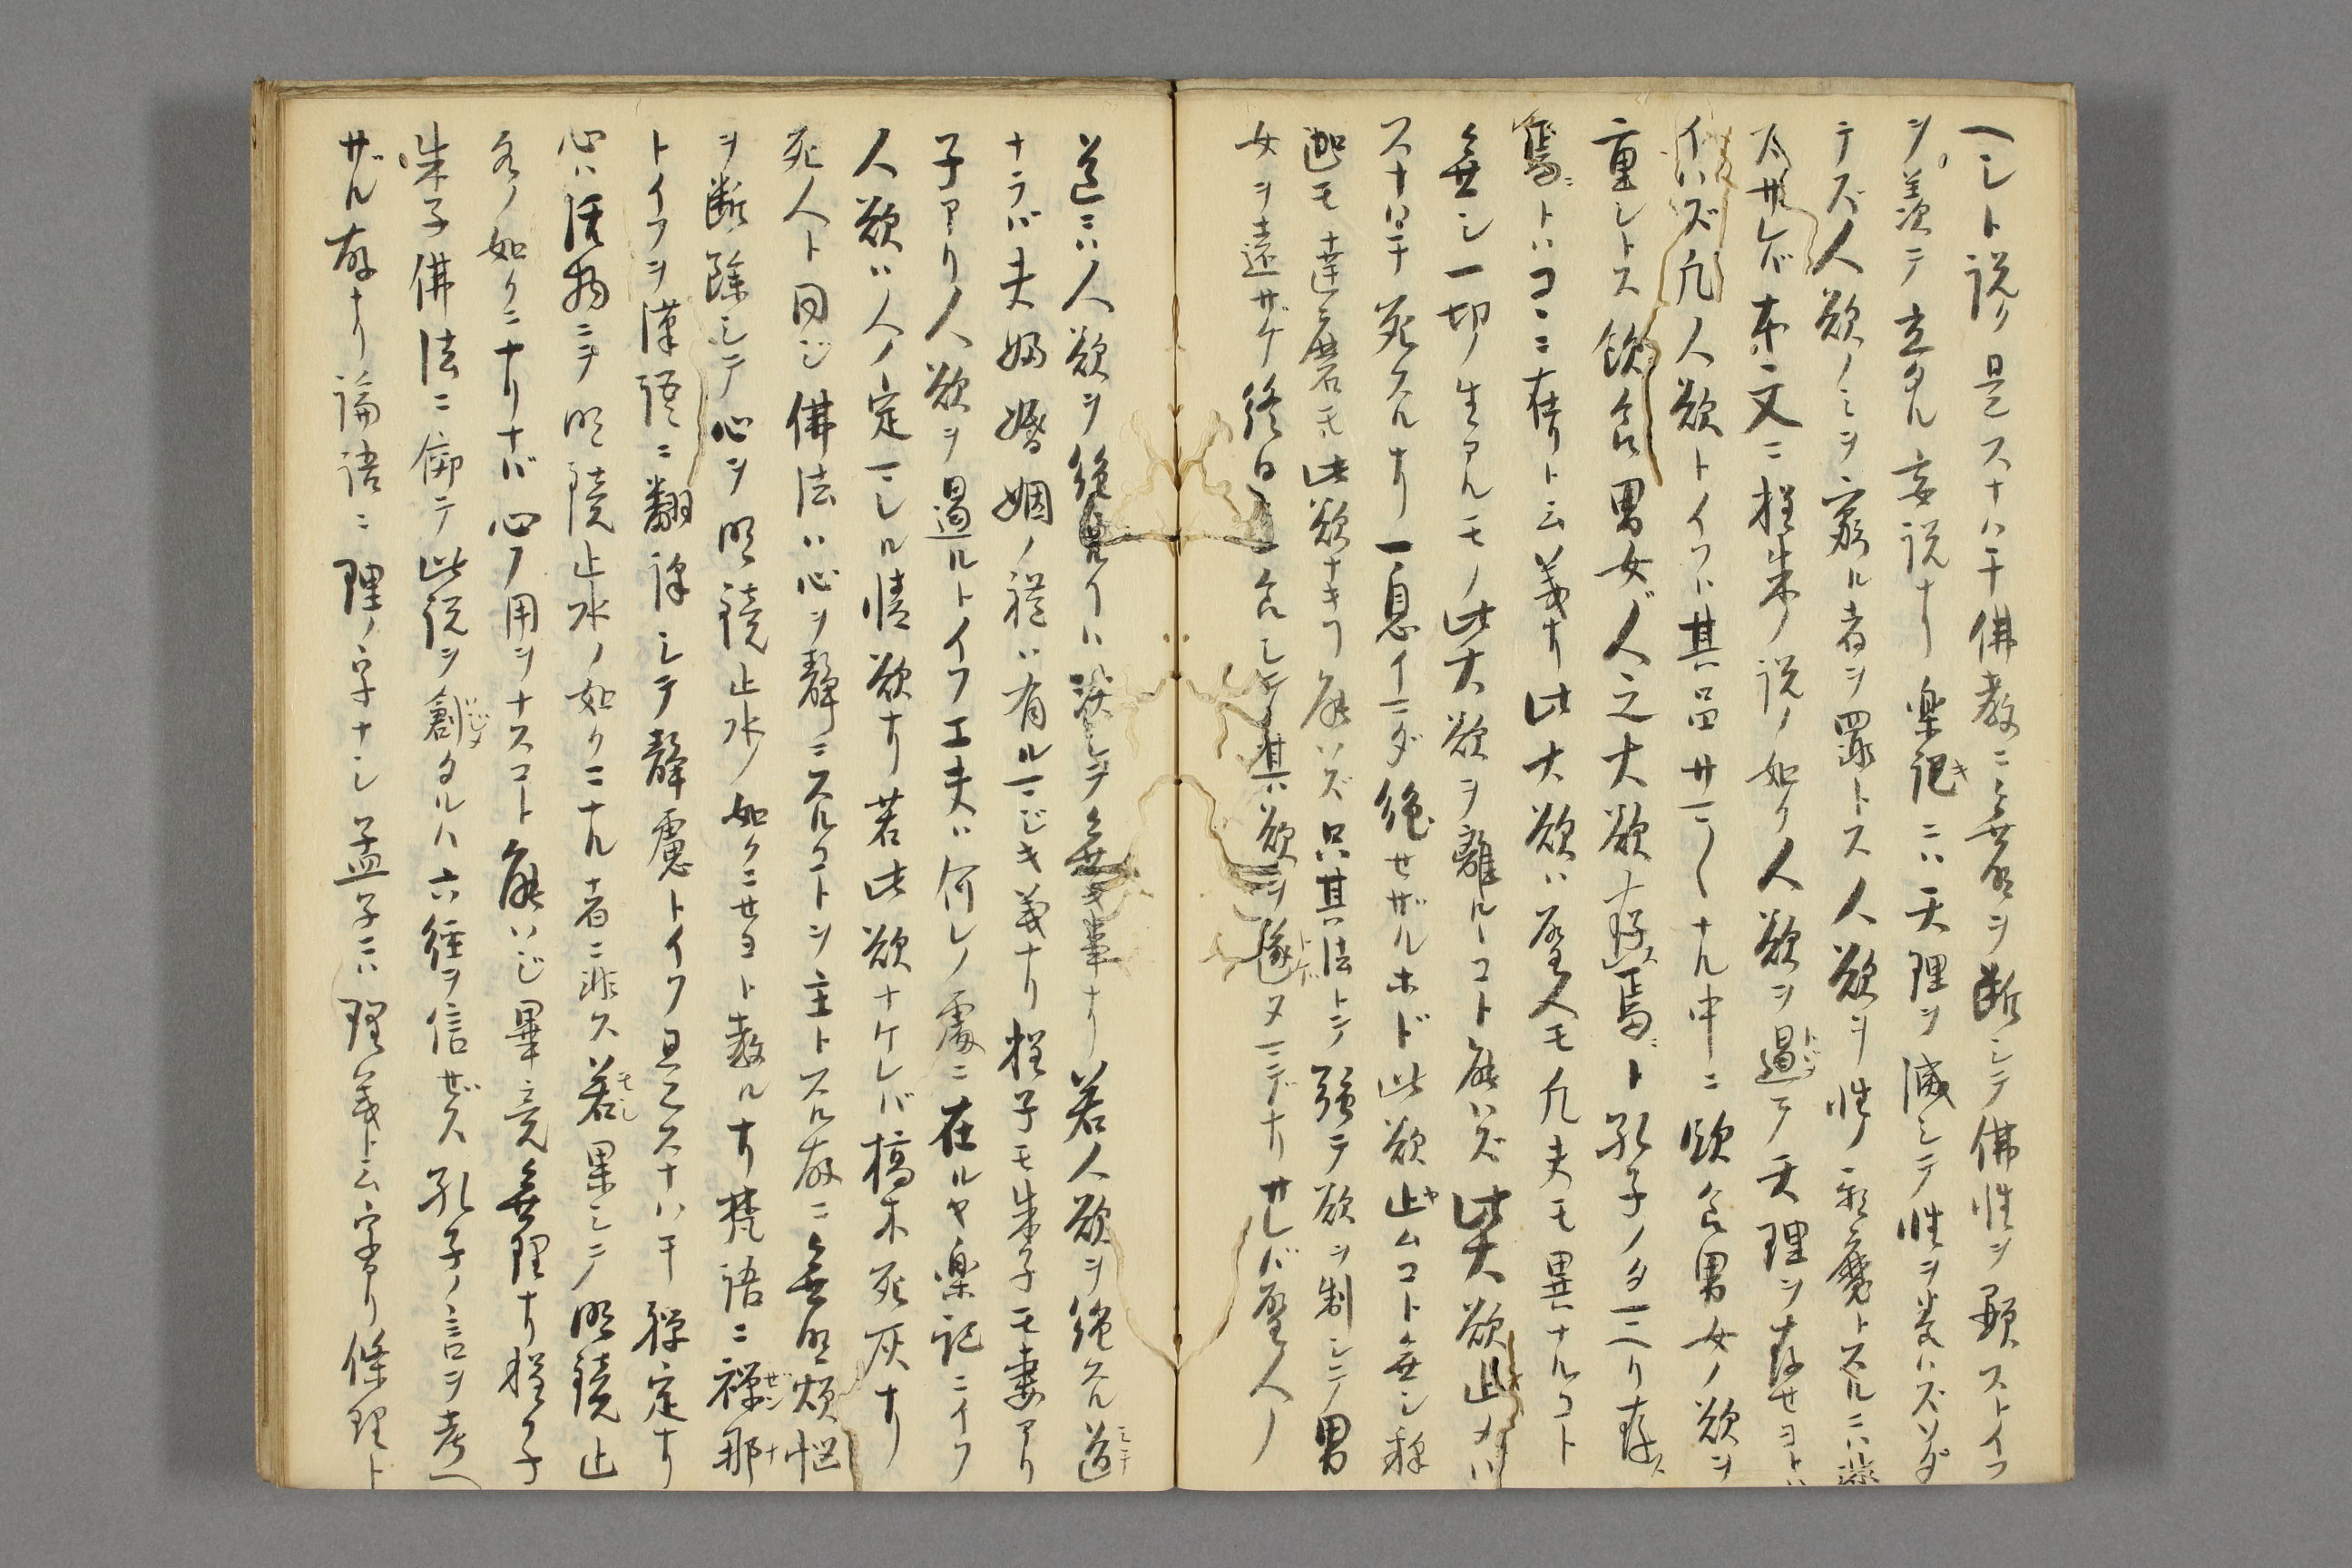 ヘシト説リ是スナハチ佛教ニ無明ヲ断シテ佛性ヲ顕ストイフ
ヲ羨テ立タル妄説ナリ楽記ニハ天理ヲ滅シテ性ヲ養ハズソダ
テズ人欲ノミヲ窮ル者ヲ罪トス人欲ヲ性ノ邪魔トスルニハ非
スサレバ本文ニ程朱ノ説ノ如ク人欲ヲ遏テ天理ヲ存セヨトハ
イハズ凡人欲トイフハ其品サマ〱ナル中ニ飲食男女ノ欲ヲ
重シトス飲食男女ハ人之大欲存焉ト孔子ノタマヘリ存
焉トハコヽニ在リト云義ナリ此大欲ハ聖人モ凡夫モ異ナルコト
無シ一切ノ生アルモノ此大欲ヲ離ルヽコト能ハズ此大欲止メハ
スナハチ死スルナリ一息イマダ絶セザルホド此欲止ムコト無シ釋
迦モ達磨モ此欲ナキコト能ハズ只其法トシテ強テ欲ヲ制シテ男
女ヲ遠ザケ終日一食シテ其欲ヲ遂ヌマデナリサレバ聖人ノ
道ニハ人欲ヲ絶ルイハ決シテ無キ事ナリ若人欲ヲ絶スル道
ナラバ夫婦婚姻ノ禮ハ有ルマジキ義ナリ程子モ朱子モ妻アリ
子アリ人欲ヲ遏ルトイフ工夫ハ何レノ處ニ在ルヤ楽記ニイフ
人欲ハ人ノ定マレル情欲ナリ若此欲ナケレバ槁木死灰ナリ
死人ト同ジ佛法ハ心ヲ静ニスルコトヲ主トスル故ニ無明煩悩
ヲ断除シテ心ヲ明鏡止水ノ如クニセヨト教ルナリ梵語ニ禪那
トイフヲ漢語ニ翻訳シテ静慮トイフ是スナハチ禪定ナリ
心ハ活物ニテ明鏡止水ノ如クニナル者ニ非ス若果シテ明鏡止
水ノ如クニナリナバ心ノ用ヲナスコト能ハジ畢竟無理ナリ程子
朱子佛法ニ倣テ此説ヲ創タルハ六經ヲ信ゼス孔子ノ言ヲ考ヘ
ザル故ナリ論語ニ理ノ字ナシ孟子ニハ理義ト云字アリ條理ト